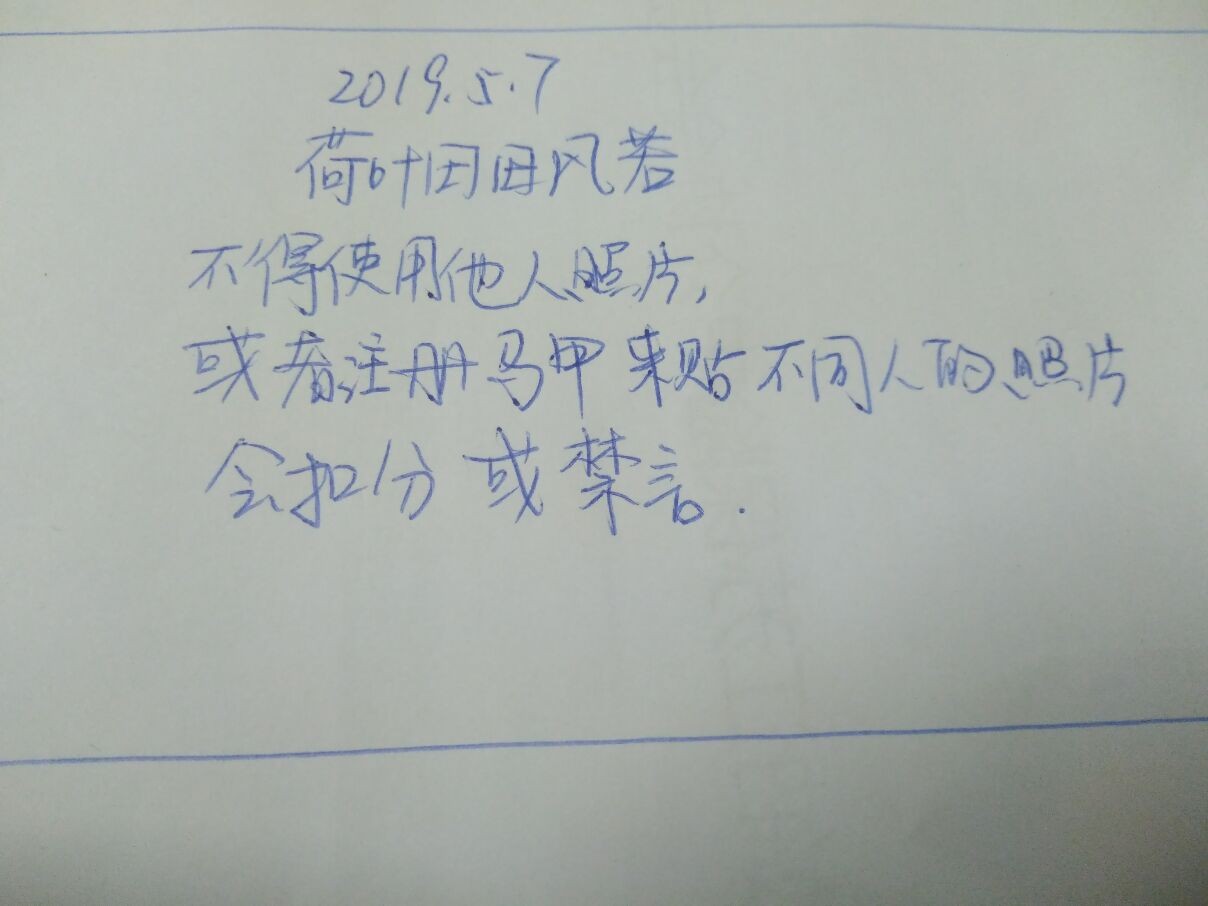 2019.5.7
荷叶田田风若
不得使用他人照片,
或者注册马甲来贴不同人的照片
会扣分或禁言.